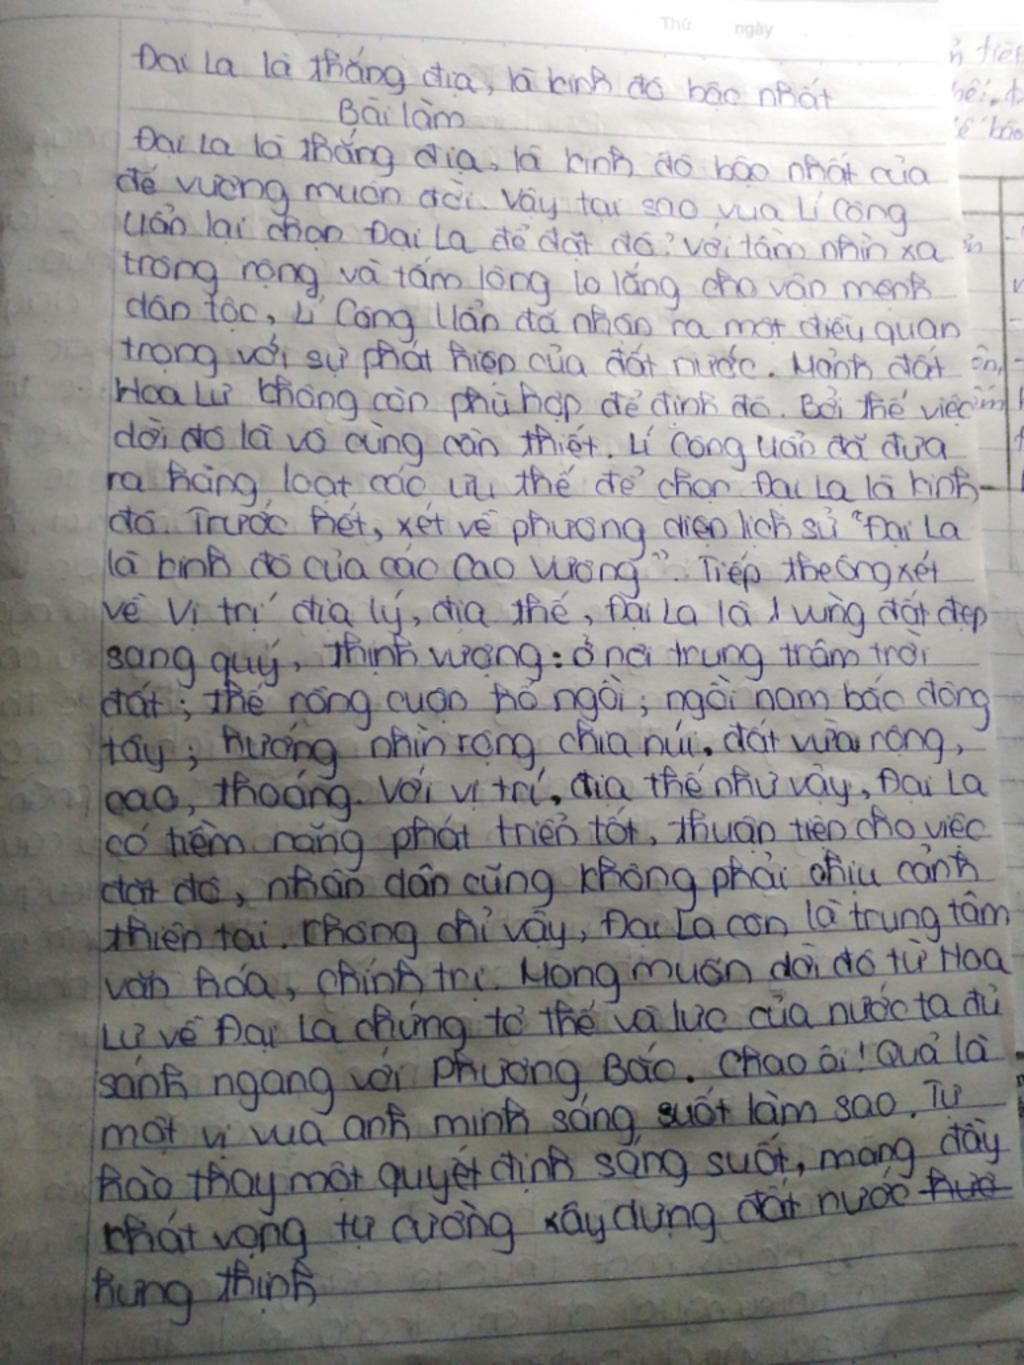 Thứ ngày
Đại La là thắng địa, là kinh đô bậc nhất
Bài làm
Đại La là thắng địa, là kinh đô bậc nhất của
đế vương muôn đời. Vậy tại sao vua Lí Công
Uẩn lại chọn Đại La để đặt đô? Với tầm nhìn xa
trông rộng và tấm lòng lo lắng cho vận mệnh
dân tộc, Lí Công Uẩn đã nhận ra một điều quan
trọng với sự phát hiện của đất nước. Mảnh đất
Hoa Lư không còn phù hợp để định đô. Bởi thế việc
dời đô là vô cùng cần thiết. Lí Công Uẩn đã đưa
ra hàng loạt các ưu thế để chọn Đại La là kinh
đô. Trước hết, xét về phương diện lịch sử "Đại La
là kinh đô của các Cao Vương". Tiếp theông xét
về vị trí địa lý, địa thế, Đại La là 1 vùng đất đẹp
sang quý, thịnh vượng: ở nơi trung trâm trời
đất; thế rồng cuộn hổ ngồi; ngôi nam bắc đông
tây; hướng nhìn rộng chia núi, đất vừa rộng,
cao, thoáng. Với vị trí, địa thế như vậy, Đại La
có tiềm năng phát triển tốt, thuận tiện cho việc
đặt đô, nhân dân cũng không phải chịu cảnh
thiên tai. Không chỉ vậy, Đại La còn là trung tâm
văn hóa, chính trị. Mong muốn dời đô từ Hoa
Lư về Đại La chứng tỏ thế và lực của nước ta đủ
sánh ngang với Phương Bắc. Chao ôi! Quả là
một vị vua anh minh sáng suốt làm sao. Tự
hào thay một quyết định sáng suốt, mang đầy
khát vọng tự cường xây dựng đất nước
hưng thịnh